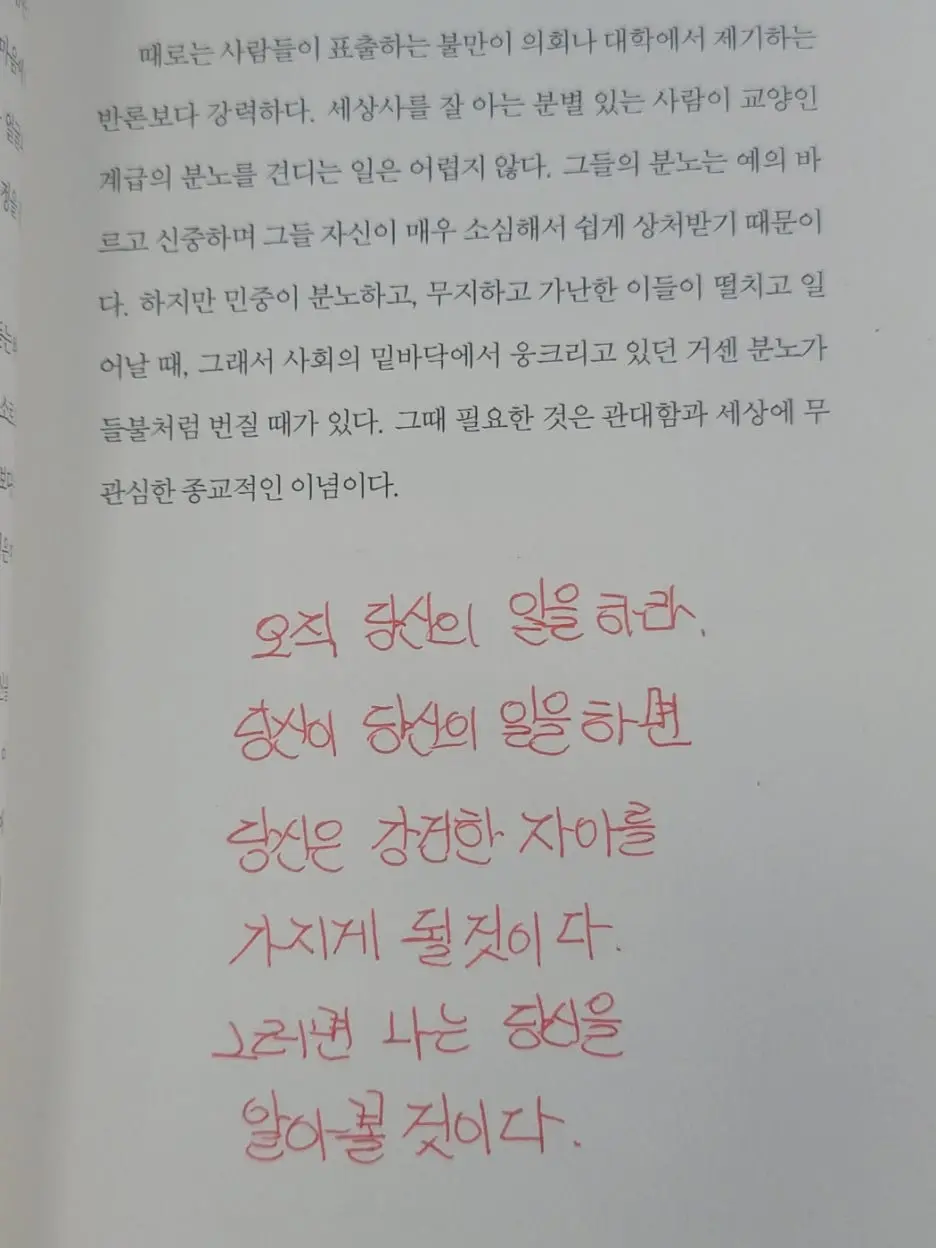 때로는 사람들이 표출하는 불만이 의회나 대학에서 제기하는
반론보다 강력하다. 세상사를 잘 아는 분별 있는 사람이 교양인
계급의 분노를 견디는 일은 어렵지 않다. 그들의 분노는 예의 바
르고 신중하며 그들 자신이 매우 소심해서 쉽게 상처받기 때문이
다. 하지만 민중이 분노하고, 무지하고 가난한 이들이 떨치고 일
어날 때, 그래서 사회의 밑바닥에서 웅크리고 있던 거센 분노가
들불처럼 번질 때가 있다. 그때 필요한 것은 관대함과 세상에 무
관심한 종교적인 이념이다.
오직 당신의 일을 하라.
당신이 당신의 일을 하면
당신은 강건한 자아를
가지게 될 것이다.
그러면 나는 당신을
알아볼 것이다.